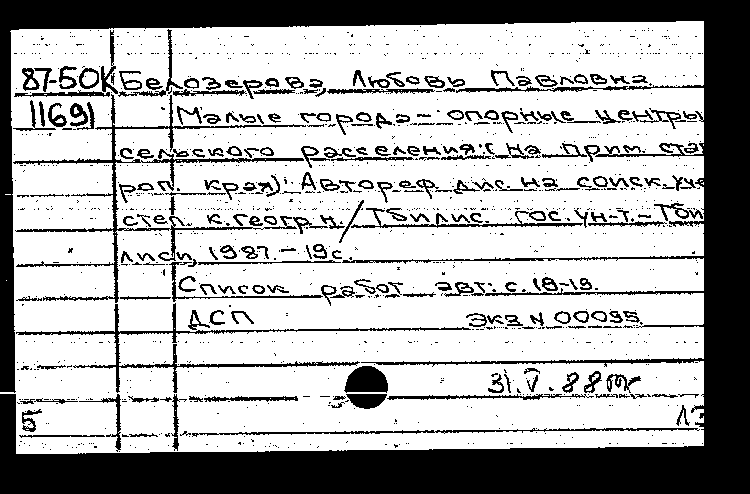 87-5ОК Белозерова, Любовь Павловна
11691 Малые города – опорные центры
сельского расселения: (на прим. став
роп. края): Автореф. дис. на соиск. уче
степ. к. геогр. н. / Тбилис. гос. ун-т. – Тби
лиси, 1987. – 19 с.
Список работ авт.: с. 18-19.
ДСП Экз N 00095
31.V.88
5